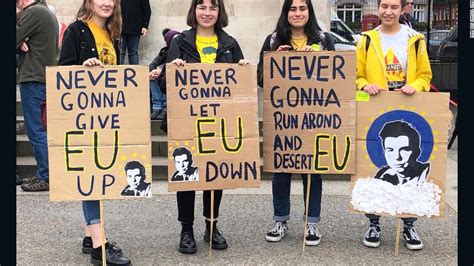 CNN
NEVER
GONNA
GIVE
EU
UP
NEVER
GONNA
LET
EU
DOWN
NEVER
GONNA
RUN AROND
AND
DESERT EU